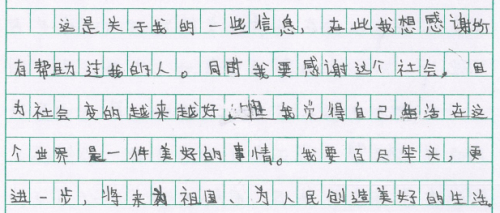 这是关于我的一些信息,在此我想感谢所
有帮助过我的人。同时我要感谢这个社会。因
为社会变的越来越好,我觉得自己生活在这
个世界是一件美好的事情。我要百尺竿头,更
进一步,将来为祖国、为人民创造美好的生活。